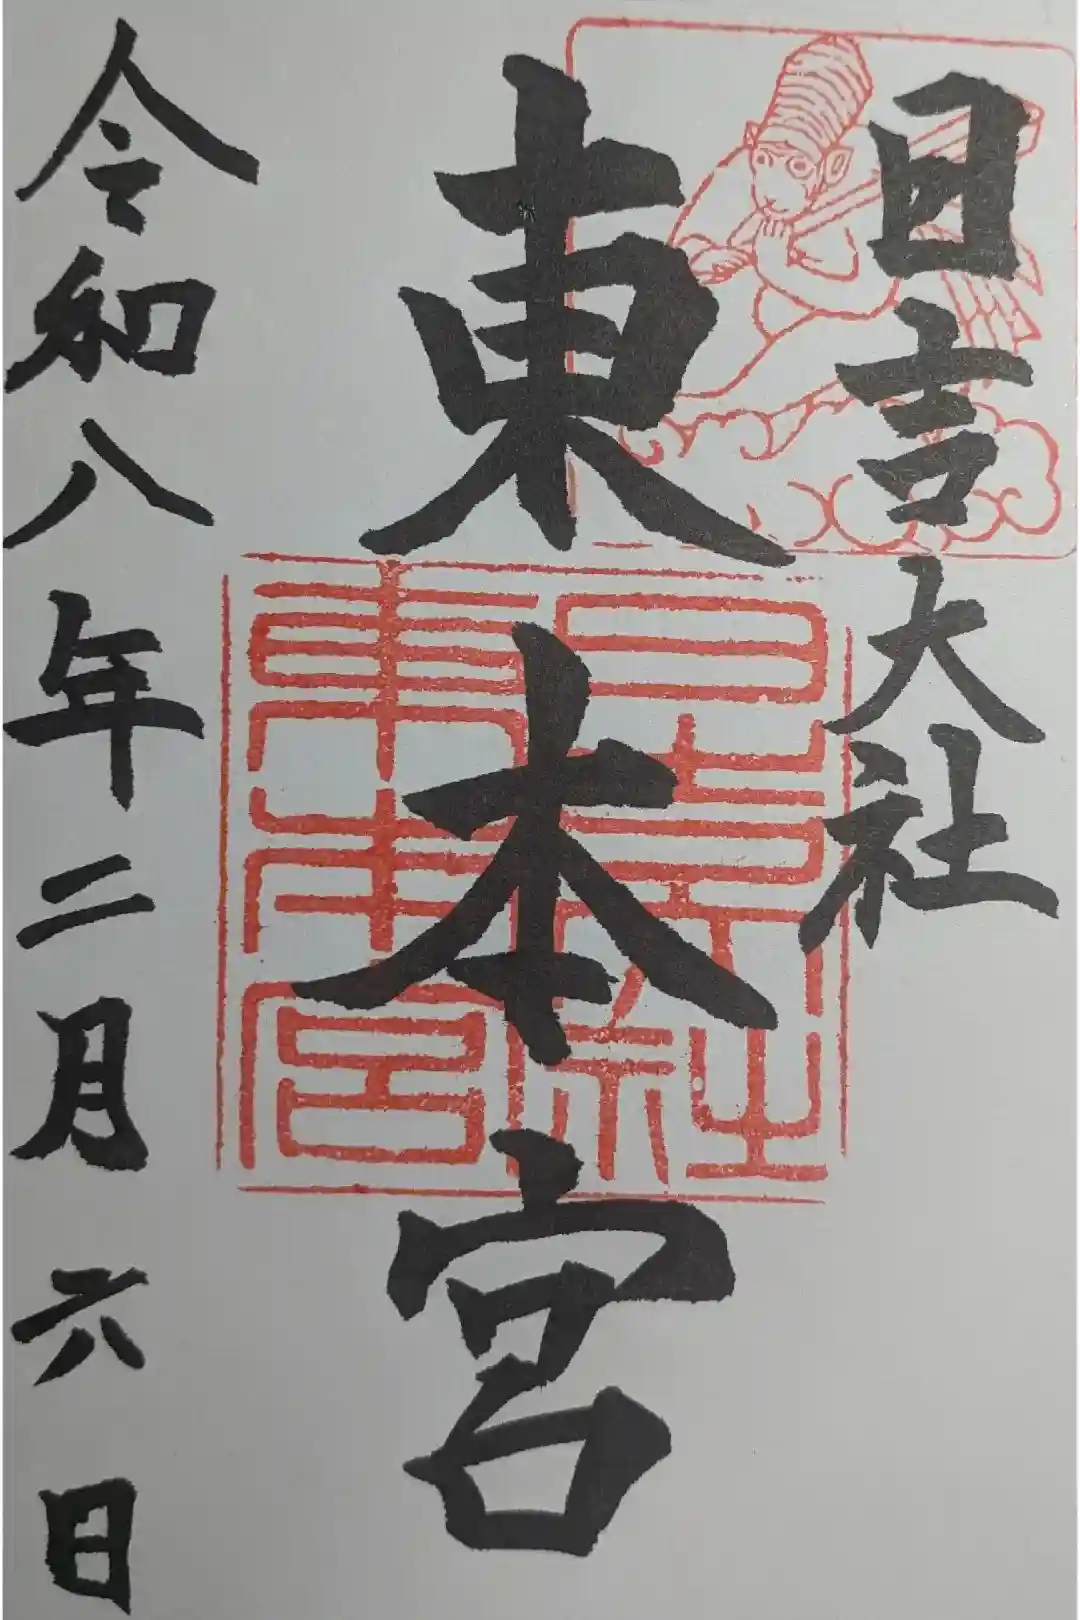 日吉大社
東本宮
令和八年二月六日
日吉大社
東本宮